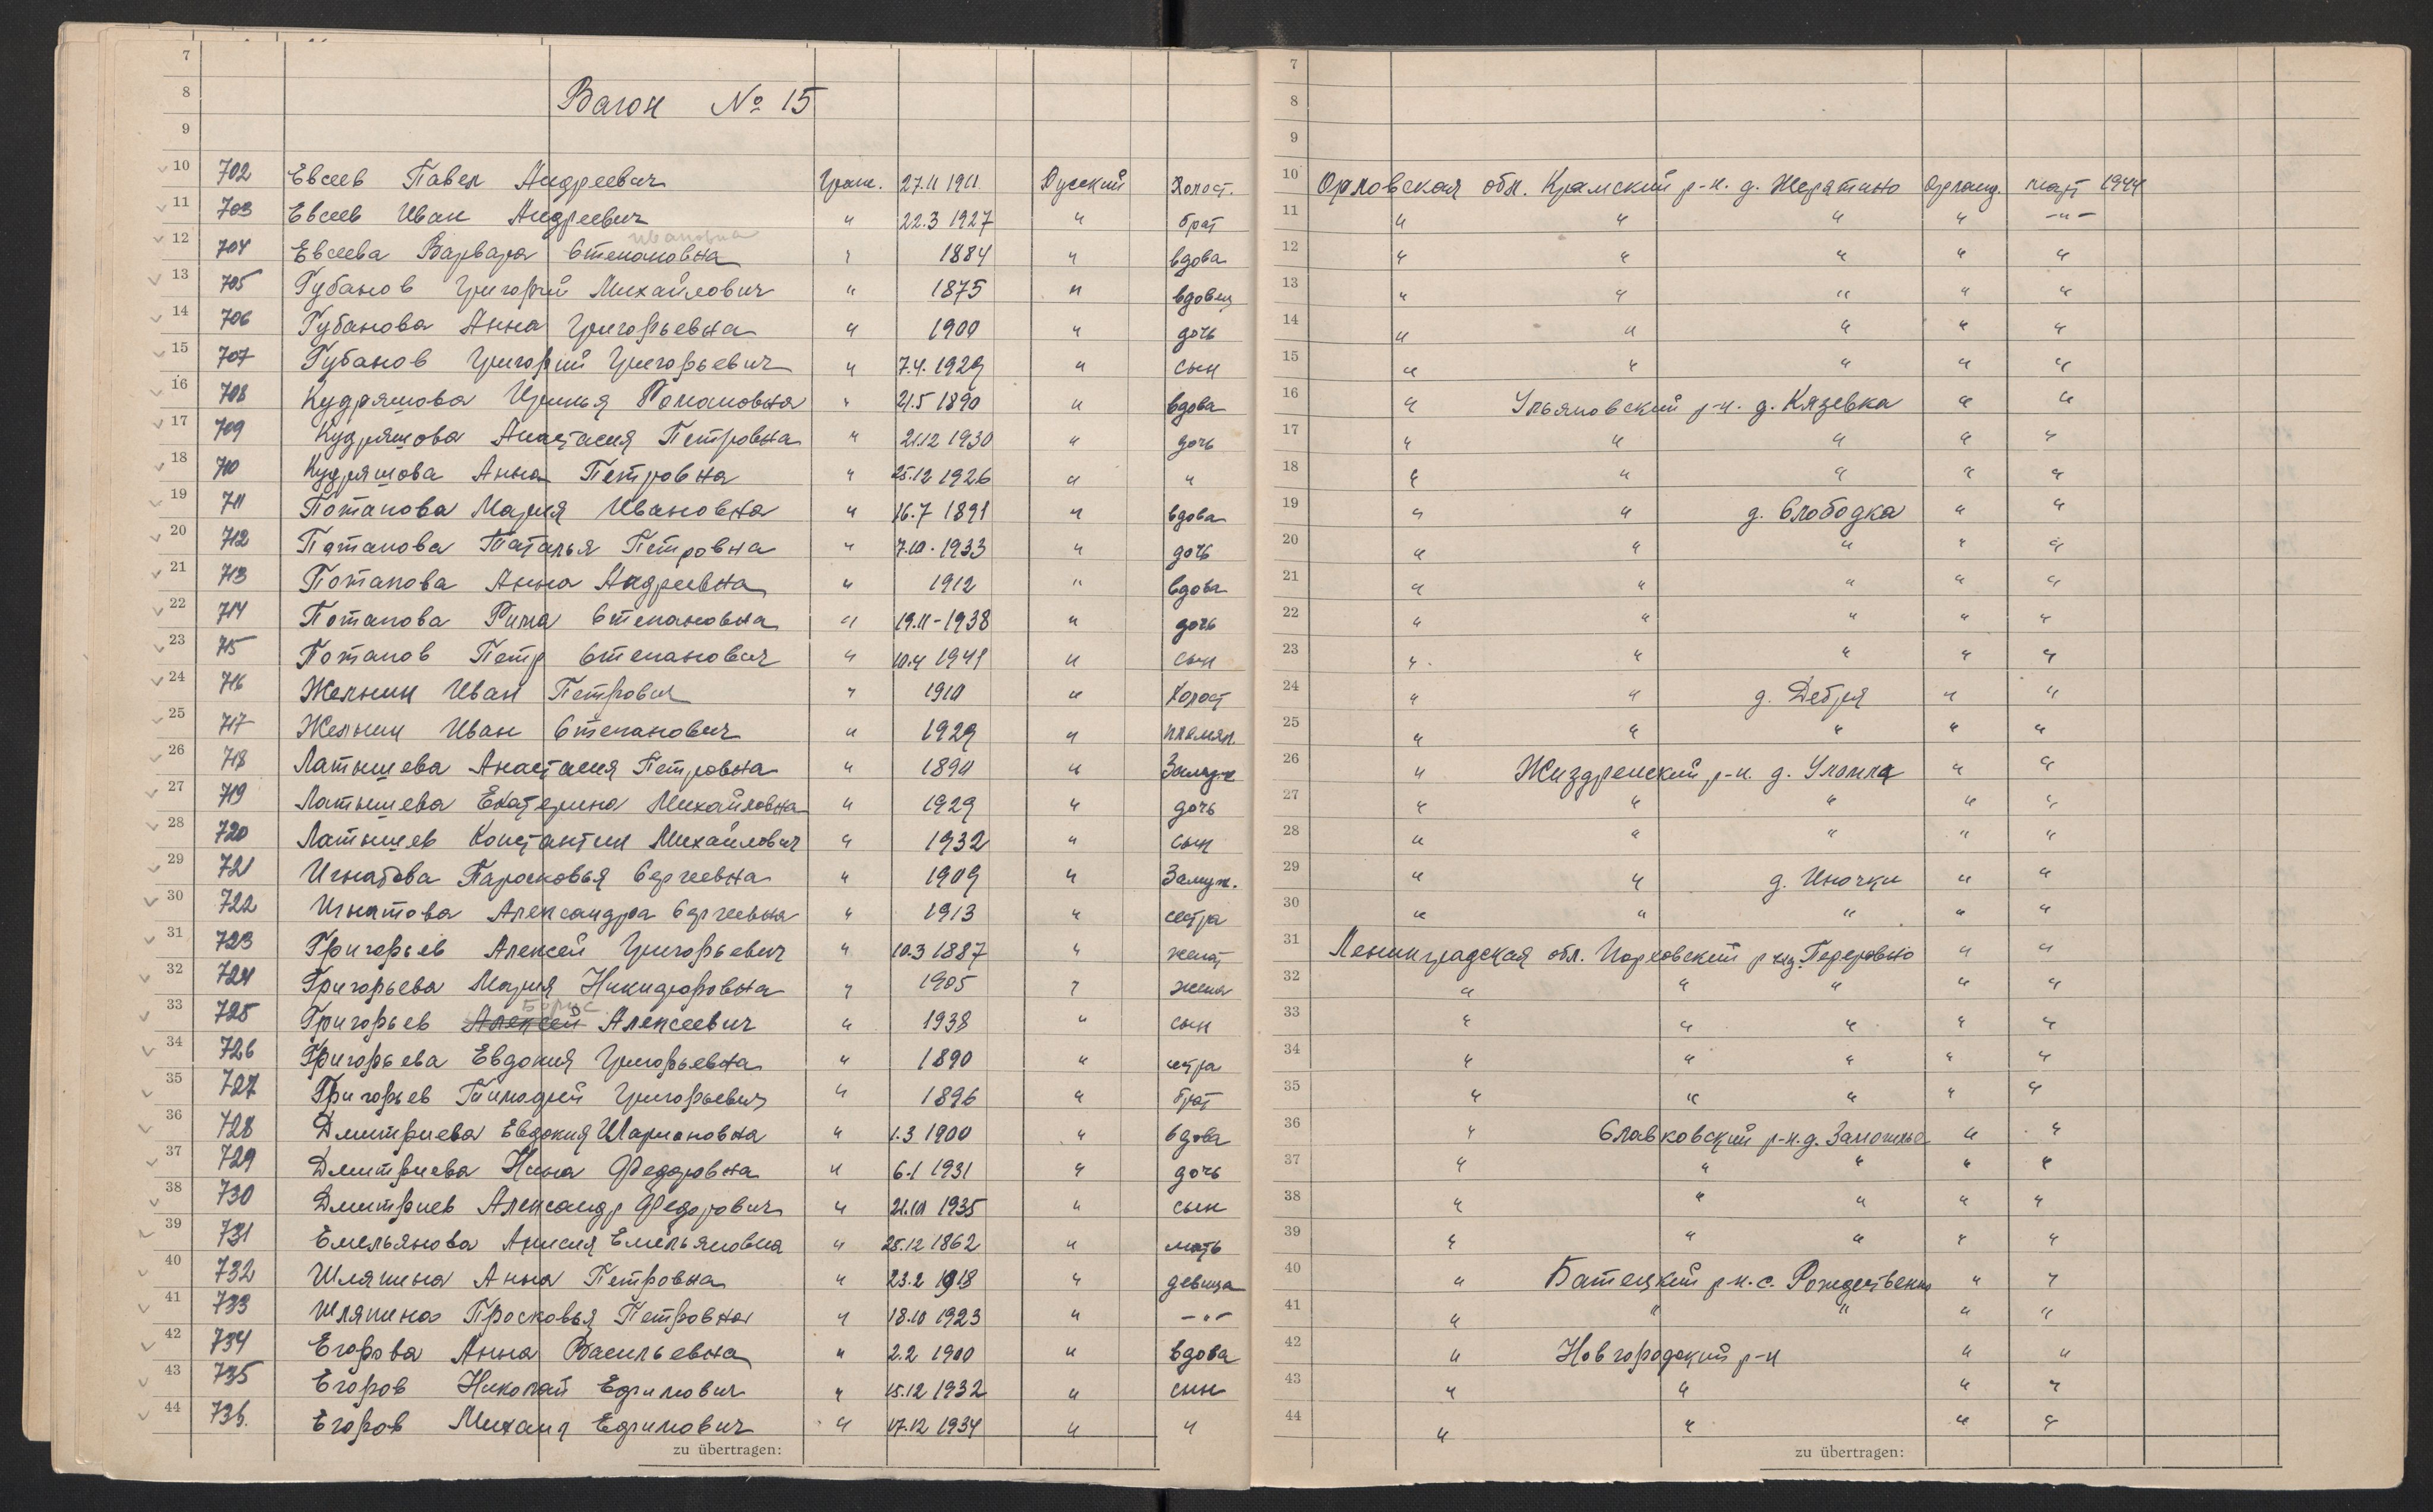 7 7
8 Вагон № 15 8
9 9
10 702 Евсеев Павел Андреевич Граж. 27.11 1911 Русский Холост. 10 Орловская обл. Крамский р-н. д. Жерятино Организ. март 1944
11 703 Евсеев Иван Андреевич " 22.3 1927 " брат 11 " " " " -"-
ивановна
12 704 Евсеева Варвара Степановна " 1884 " вдова 12 " " " " "
13 705 Губанов Григорий Михайлович " 1875 " вдовец 13 " " " " "
14 706 Губанова Анна Григорьевна " 1900 " дочь 14 " " " " "
15 707 Губанов Григорий Григорьевич " 7.4. 1929 " сын 15 " " " " "
16 708 Кудряшова Иринья Романовна " 21.5 1890 " вдова 16 " Ульяновский р-н. д. Кязевка " "
17 709 Кудряшова Анастасия Петровна " 21.12 1930 " дочь 17 " " " " "
18 710 Кудряшова Анна Петровна " 25.12 1926 " " 18 " " " " "
19 711 Потапова Мария Ивановна " 16.7 1891 " вдова 19 " " д. Слободка " "
20 712 Потапова Наталья Петровна " 7.10. 1933 " дочь 20 " " " " "
21 713 Потапова Анна Андреевна " 1912 " вдова 21 " " " " "
22 714 Потапова Рима Степановна " 19.11-1938 " дочь 22 " " " " "
23 715 Потапов Петр Степанович " 10.4 1941 " сын 23 " " " " "
24 716 Желнин Иван Петрович " 1910 " Холост 24 " " д. Дебря " "
25 717 Желнин Иван Степанович " 1929 " племян. 25 " " " " "
26 718 Латышева Анастасия Петровна " 1890 " Замуж 26 " Жиздренский р-н. д. Улемла " "
27 719 Латышева Екатерина Михайловна " 1929 " дочь 27 " " " " "
28 720 Латышев Константин Михайлович " 1932 " сын 28 " " " " "
29 721 Игнатова Парасковья Сергеевна " 1909 " Замуж. 29 " " д. Иночки " "
30 722 Игнатова Александра Сергеевна " 1913 " сестра 30 " " " " "
31 723 Григорьев Алексей Григорьевич " 10.3 1887 " женат 31 Ленинградская обл. Порховский р " "
32 724 Григорьева Мария Никифоровна " 1905 " жена 32 " " " " "
Борис
33 725 Григорьев Алексей Алексеевич " 1938 " сын 33 " " " " "
34 726 Григорьева Евдокия Григорьевна " 1890 " сестра 34 " " " " "
35 727 Григорьев Тимофей Григорьевич " 1896 " брат 35 " " " " "
36 728 Дмитриева Евдокия Илларионовна " 1.3 1900 " вдова 36 " Славковский р-н. д. Замошье " "
37 729 Дмитриева Нина Федоровна " 6.1 1931 " дочь 37 " " " " "
38 730 Дмитриев Александр Федорович " 21.10 1935 " сын 38 " " " " "
39 731 Емельянова Анисия Емельяновна " 25.12 1862 " мать 39 " " " " "
40 732 Шляпина Анна Петровна " 23.2 1918 " девица 40 " Батецкий р-н. с. Рождествено " "
41 733 Шляпина Просковья Петровна " 18.10 1923 " -"- 41 " " " " "
42 734 Егорова Анна Васильевна " 2.2 1900 " вдова 42 " Новгородский р-н " "
43 735 Егоров Николай Ефимович " 15.12 1932 " сын 43 " " " "
44 736. Егоров Михаил Ефимович " 17.12 1934 " " 44 " " " "
zu übertragen: zu übertragen: